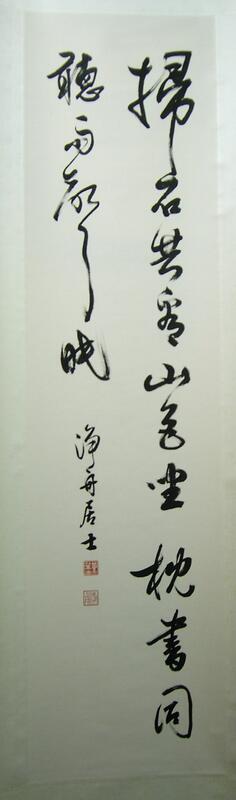 掃石共看山色坐枕書同
聽雨聲眠
淨舟居士